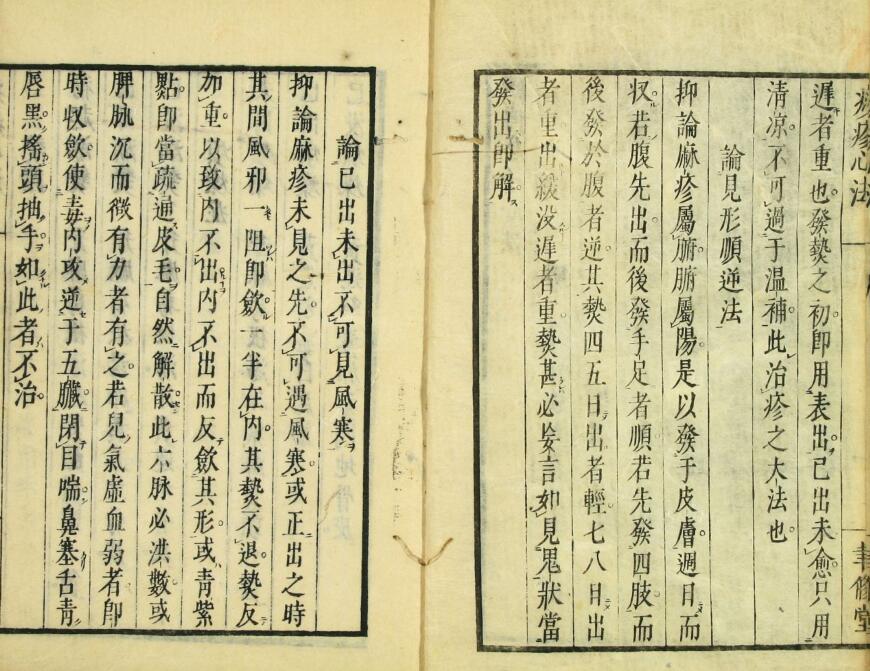 疹心法
聿修堂
遲者重也發熱之初即用表出已出未愈只用
清凉不可過于温補此治疹之大法也
論見形順逆法
抑論麻疹屬腑腑屬陽是以發于皮膚週日而
収若腹先出而後發手足者順若先發四肢而
後發於腹者逆其熱四五日出者輕七八日出
者重出緩没遲者重熱甚必妄言如見鬼狀當
發出即解
論已出未出不可見風寒
抑論麻疹未見之先不可遇風寒或正出之時
其間風邪一阻即斂一半在内其熱不退熱反
加重以致内不出内不出而反斂其形或青紫
點即當疏通皮毛自然解散此六脉必洪數或
脾脉沉而微有力者有之若兒氣虚血弱者即
時収斂使毒内攻逆于五臓閉目喘鼻塞舌青
唇黑搖頭抽手如此者不治